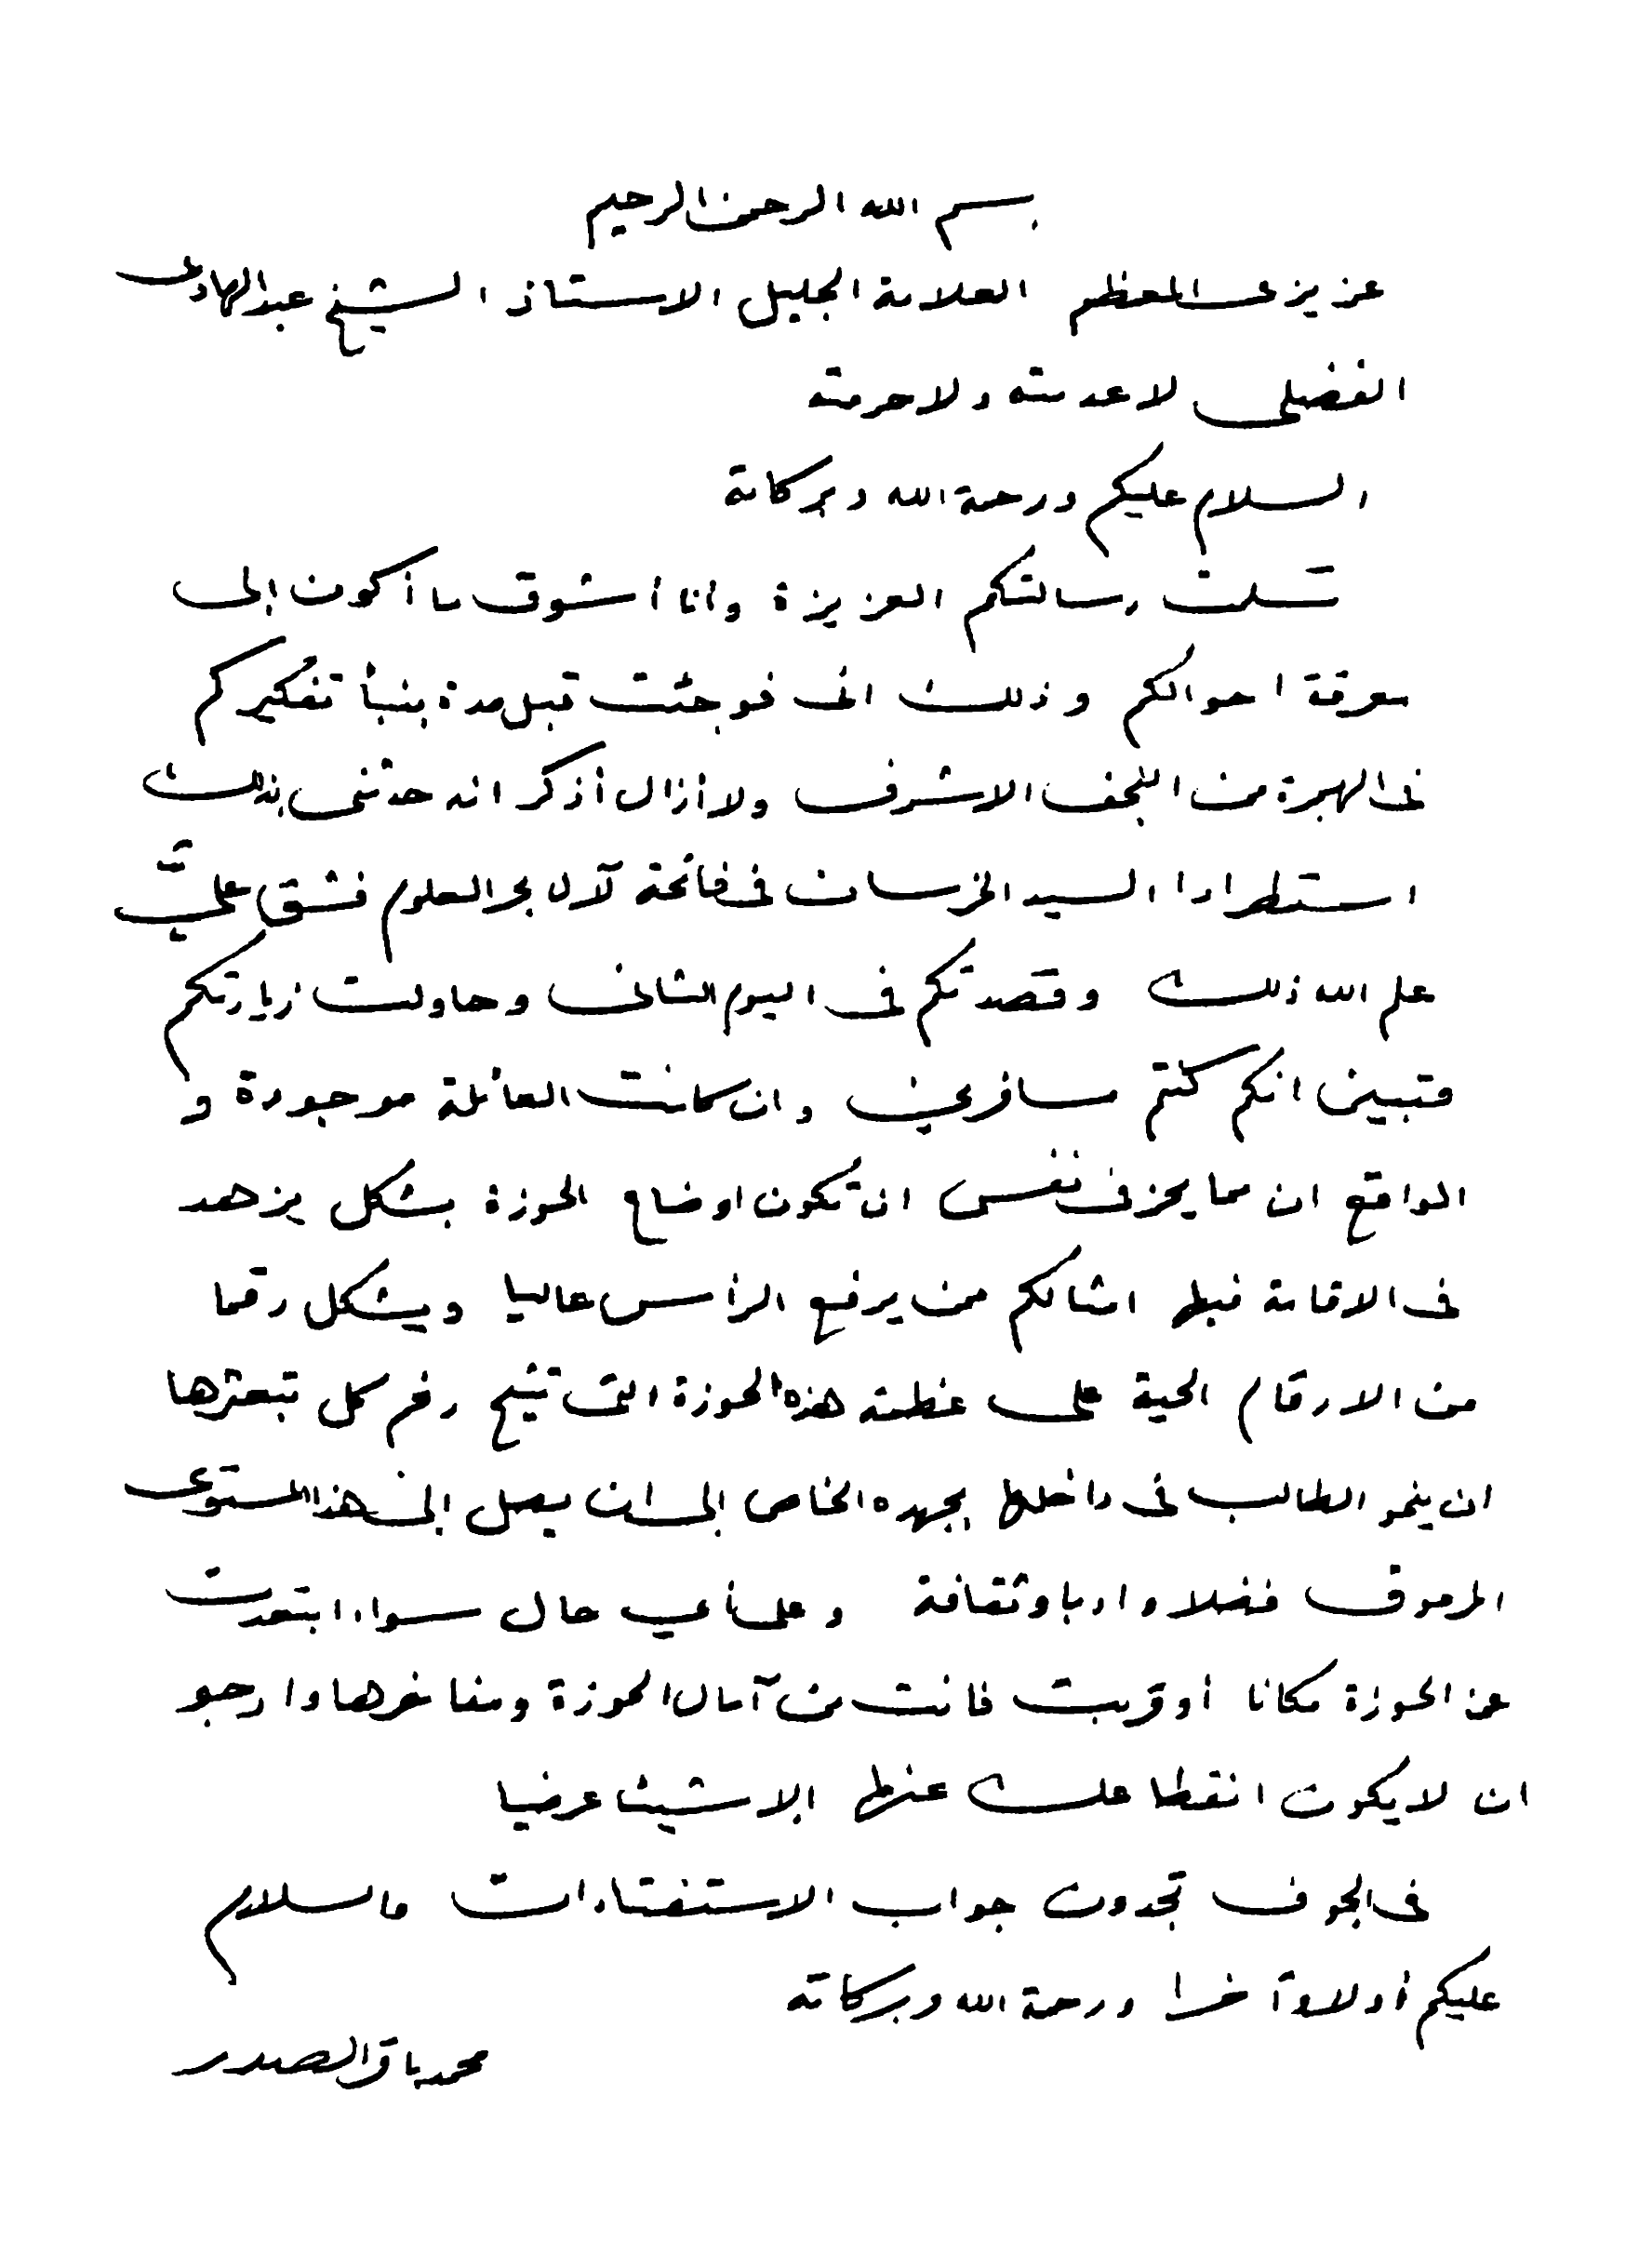 بسم الله الرحمن الرحيم
عزيزي المعظم العلامة الجليل الاستاذ الشيخ عبد الهادي
الفضلي لا عدمته ولا حرمته
السلام عليكم ورحمة الله وبركاته
تسلمت رسالتكم العزيزة وأنا أشوق ما أكون إلى
معرفة احوالكم وذلك اني فوجئت قبل مدة بنبأ تفكيركم
في الهجرة من النجف الاشرف ولا أزال أذكر انه حدثني بذلك
استطرادا السيد الخرسان في فاتحة لآل بحر العلوم فشق عليَّ
علم الله ذلك وقصدتكم في اليوم الثاني وحاولت زيارتكم
فتبين انكم كنتم مسافرين وان كانت العائلة موجودة و
الواقع ان مما يحز في نفسي ان تكون اوضاع الحوزة بشكل يزهد
في الاقامة فيها امثالكم ممن يرفع الرأس عاليا ويشكل رقما
من الارقام الحية على عظمة هذه الحوزة التي تتيح رغم كل تبعثرها
ان ينمو الطالب في داخلها بجهده الخاص إلى ان يصل إلى هذا المستوى
المرموق فضلا وادبا وثقافة وعلى أي حال سواء ابتعدت
عن الحوزة مكانا أو قربت فانت من آمال الحوزة ومفاخرها وارجو
ان لا يكون انقطاعك عنها إلا شيئا عرضيا
في الجوف تجدون جواب الاستفتاءات والسلام
عليكم أولا وآخرا ورحمة الله وبركاته
محمد باقر الصدر